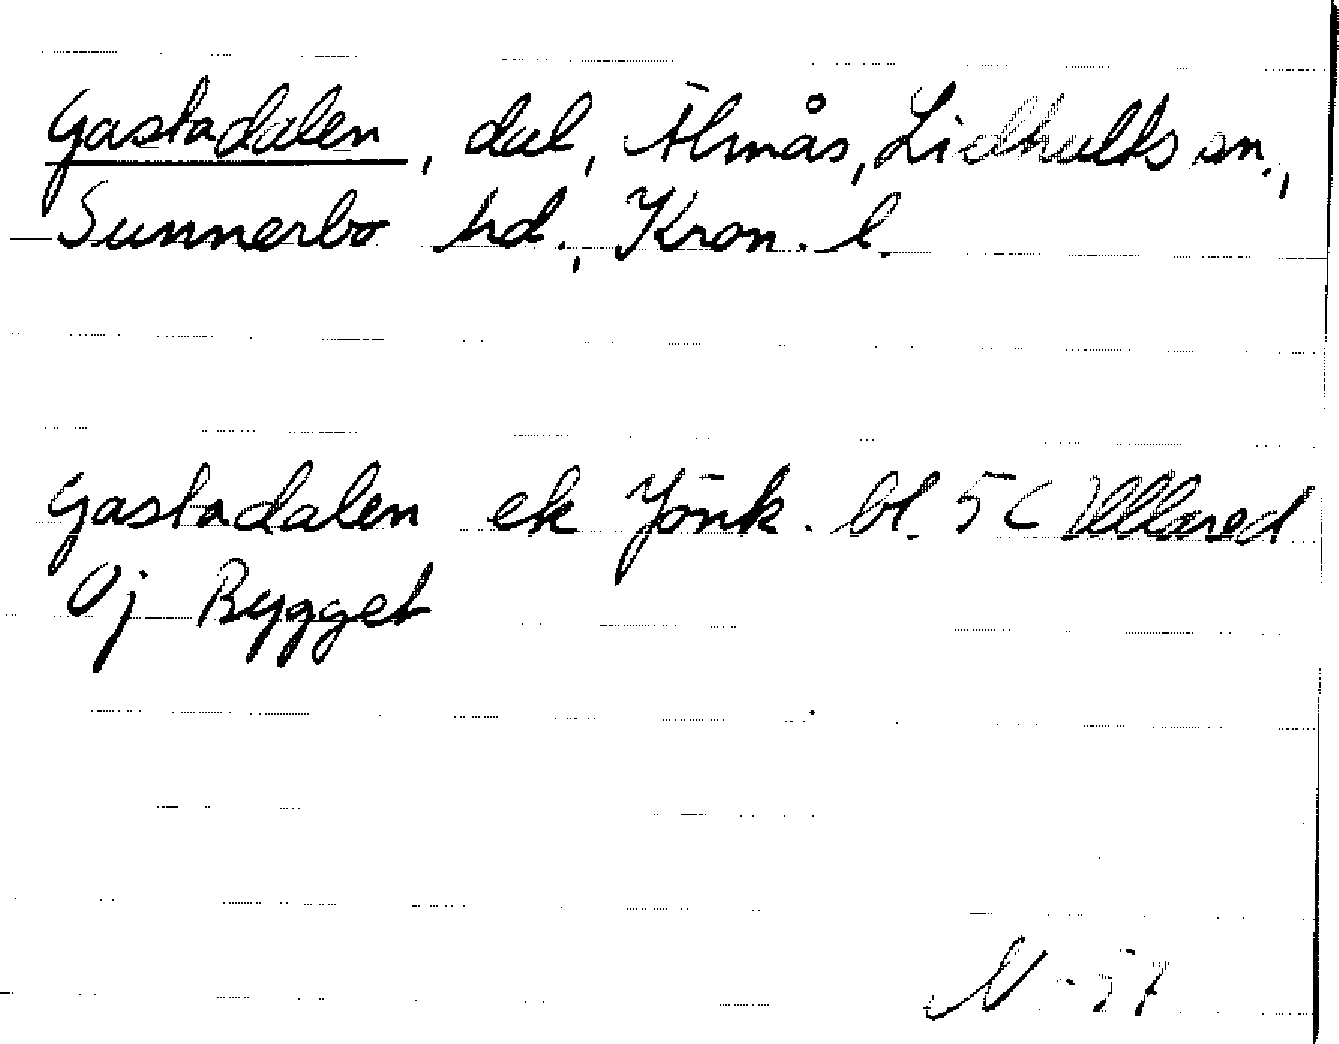 Gastadalen, dal, Älmås, Lidhults sn.,
Sunnerbo hd., Kron. l.
Gastadalen ek Jönk. bl. 5C Ullared
Oj Rygget
N -57